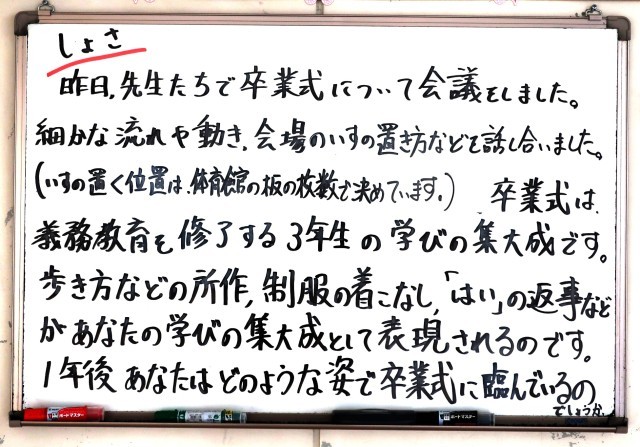 しょさ
昨日、先生たちで卒業式について会議をしました。
細かな流れや動き、会場のいすの置き方などを話し合いました。
(いすの置く位置は、体育館の板の枚数で決めています。) 卒業式は、
義務教育を修了する3年生の学びの集大成です。
歩き方などの所作、制服の着こなし、「はい」の返事など
があなたの学びの集大成として表現されるのです。
1年後あなたはどのような姿で卒業式に臨んでいるの
でしょうか。
ボードマスター
ボードマスター